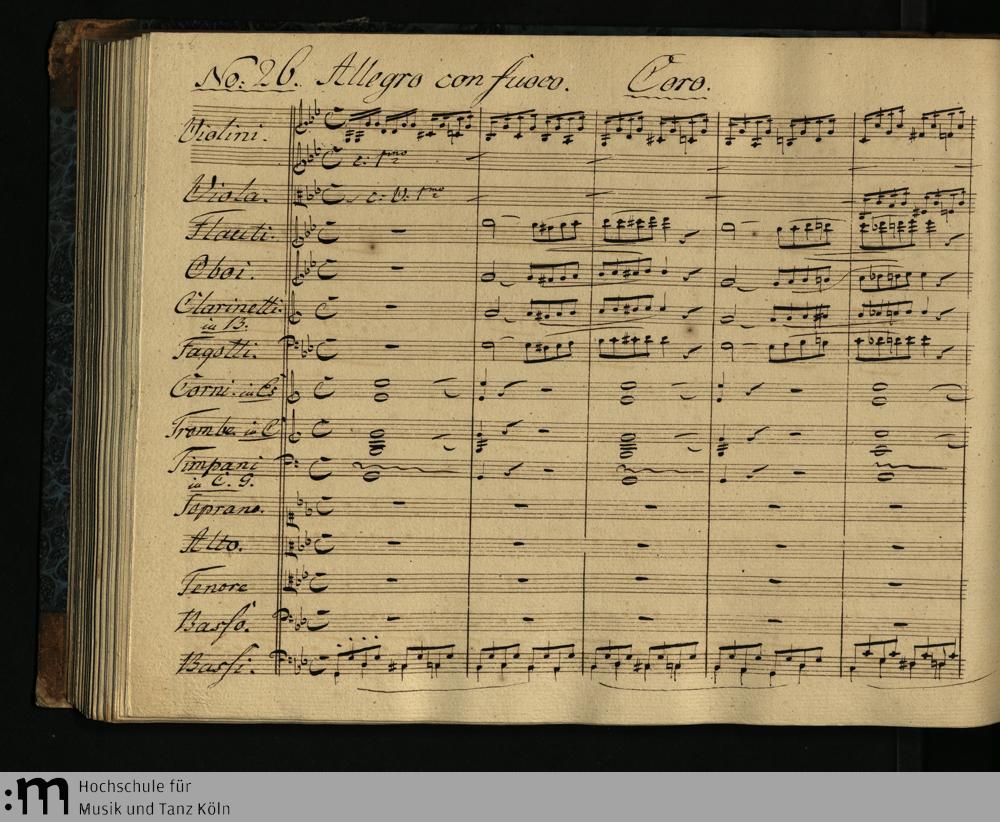 No: 26. Allegro con fuoco. Coro.
Violini.
c: 1mo
Viola.
c: V: 1mo
Flauti.
Oboi.
Clarinetti.
in B.
Fagotti.
Corni. in Es
Trombe in C
Timpani
in C. G.
Soprano.
Alto.
Tenore
Basso.
Bassi.
:m Hochschule für
Musik und Tanz Köln